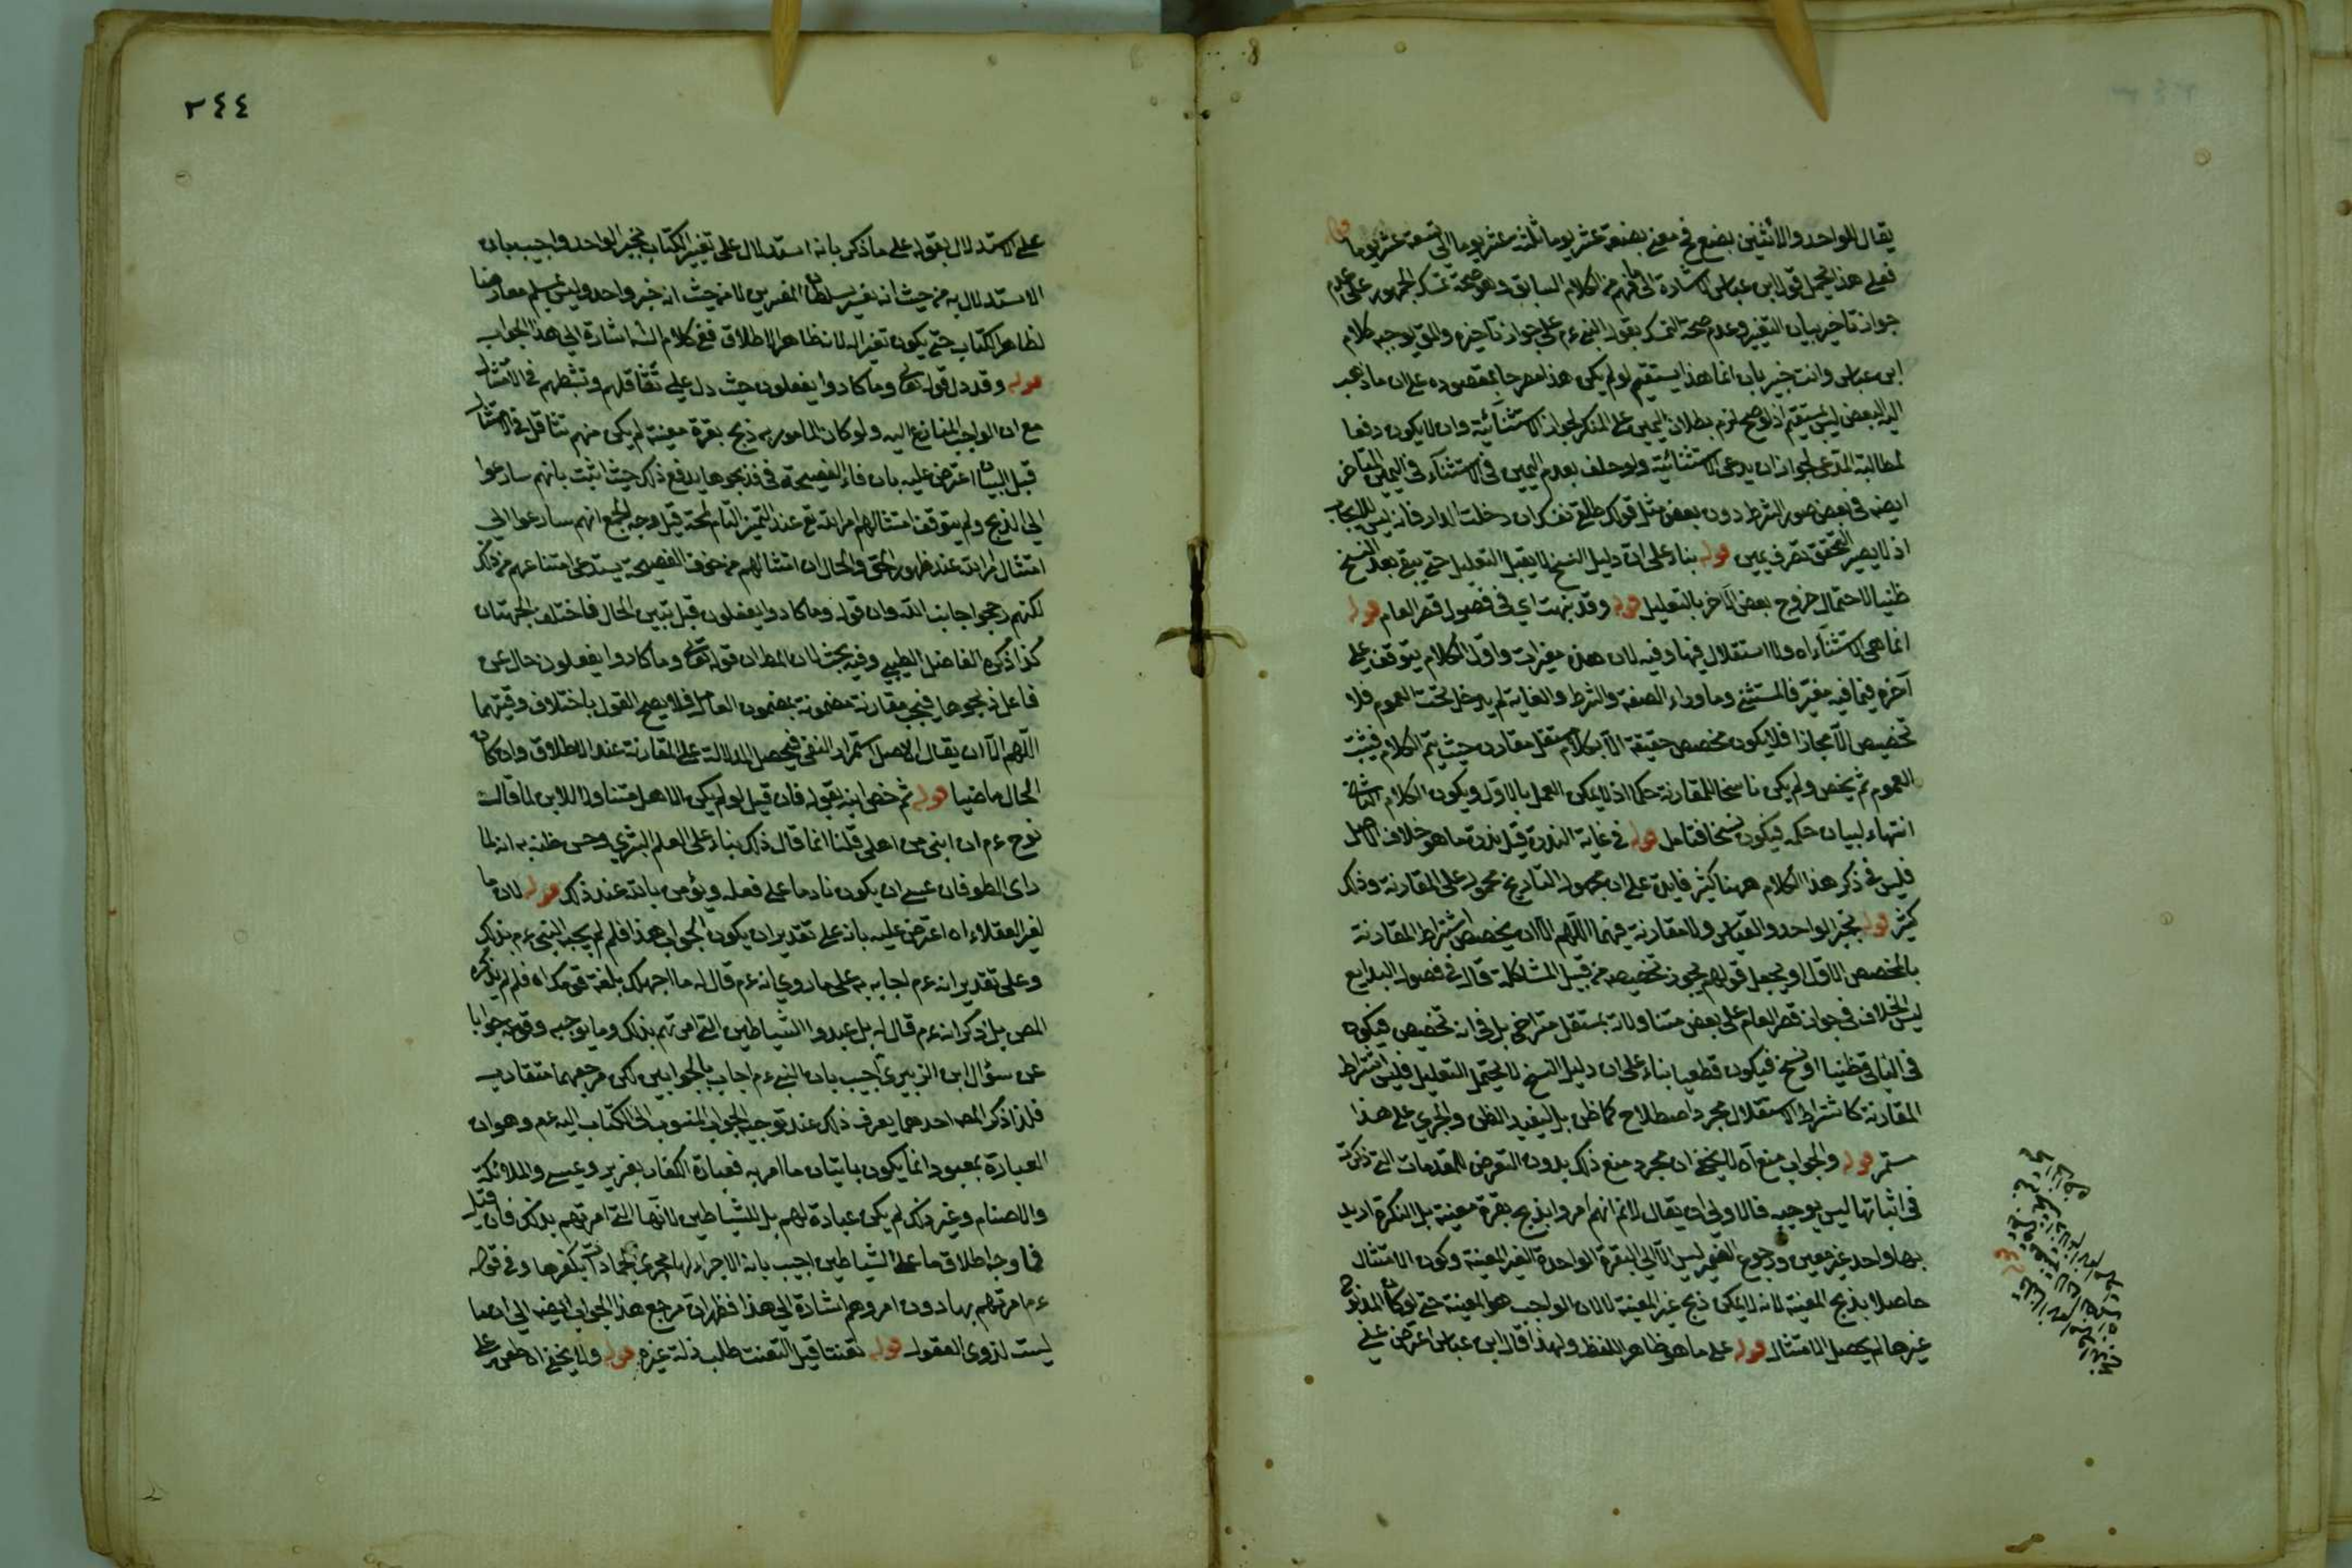 يقال للواحد والاثنين بضع فمعنى بضعة عشر يوما ثلثة عشر يوما الى تسعة عشر يوما قوله
فعلى هذا يحمل قول ابن عباس اشارة الى ما فهم من الكلام السابق وهو صحة تمسك الجمهور على عدم
جواز تاخير بيان التغيير وعدم صحة التمسك بقول النبي ءم على جواز تاخيره والتوجيه كلام
ابن عباس وانت خبير بان انما هذا يستقيم لو لم يكن هذا مصرحا بمقصوده على ان ما ذهب
اليه البعض ليس بمستقيم اذ لو صح لزم بطلان اليمين على المنكر لجواز الاستثنائية وان لا يكون دفعا
لمطالبة المدعى لجواز ان يدعى الاستثنائية ولو حلف بعدم اليمين فى الاستثناء فى اليمين المتاخر
ايضه فى بعض صور الشرط دون بعض مثل قولك طلقى نفسك ان دخلت الدار فانه ليس للايجاب
اذ لا يصير التحقق تصرف يمين قوله بناء على ان دليل النسخ لا يقبل التعليل حتى يبقى بعد النسخ
ظنيا لاحتمال خروج بعض الاخر بالتعليل قوله وقد بنهت اي فى فصول قصر العام قوله
انما هى الاستثناء اه ولا استقلال فيها وفيه لان هذه مغيرات واول الكلام يتوقف على
آخره فيما فيه مغير فالمستثنى وما وراء الصفة والشرط والغاية لم يدخل تحت العموم فلا
تخصيص الا مجازا فلا يكون مخصص حقيقة الا بكلام مستقل مقارن حيث يتم الكلام فيثبت
العموم ثم يخص ولم يكن ناسخا للمقارنة حكما اذ لا يمكن العمل بالاول ويكون الكلام الثانى
انتهاء لبيان حكمه فيكون نسخا فتامل قوله فى غاية الندرة قيل ندرة ما هو خلاف الاصل
فليس فى ذكر هذا الكلام ههنا كثير فايدة على ان مجهول التاريخ محمول على المقارنة وذلك
كثير قوله بخبر الواحد والقياس ولا مقارنة فيهما اللهم الا ان يخصص اشتراط المقارنة
بالمخصص الاول او يجعل قولهم يجوز تخصيصه من قبيل المشاكلة قال فى فصول البدايع
ليس الخلاف فى جواز قصر العام على بعض متناولاته بمستقل متراخى بل فى انه تخصيص فيكون
فى الباقى ظنيا او نسخ فيكون قطعيا بناء على ان دليل النسخ لا يحتمل التعليل فليس اشتراط
المقارنة كاشتراط الاستقلال مجرد اصطلاح كما ظن بل ليفيد الظن والجري على هذا
مستمر قوله والجواب منع اه لا يخفى ان مجرد منع ذلك بدون التعرض للمقدمات التى ذكرت
فى اثباتها ليس بوجيه فالاولى ان يقال لا نم انهم امروا بذبح بقرة معينة بل النكرة اريد
بها واحد غير معين ورجوع الضمير ليس الا الى البقرة الواحدة الغير المعينة وكون الامتثال
حاصلا بذبح المعينة لانه لا يمكن ذبح غير المعينة لا لان الواجب هو المعينة حتى لو كان المذبوح
غيرها لم يحصل الامتثال قوله على ما هو ظاهر اللفظ ولهذا قال ابن عباس اعترض على
٢٤٤
على الاستدلال بقوله على ما ذكر بانه استدلال على تغيير الكتاب بخبر الواحد واجيب بان
الاستدلال به من حيث انه تفسير سلطان المفسرين لا من حيث انه خبر واحد وليس بمسلم معارضا
لظاهر الكتاب حتى يكون تغيرا له لان ظاهره الاطلاق ففى كلام الشه اشارة الى هذا الجواب
قوله وقد دل قوله تعالى وما كادوا يفعلون حيث دل على تثاقلهم وتثبطهم فى الامتثال
مع ان الواجب المتنازع اليه ولو كان المامور به ذبح بقرة معينة لم يكن منهم تثاقل فى الامتثال
قبل البيان اعترض عليه بان فاء الفصيحة فى فذبحوها يدفع ذلك حيث اثبت بانهم سارعوا
الى الذبح ولم يتوقف امتثالهم امر الله تع عند التميز التام لمحة قيل وجه الجمع انهم سارعوا الى
امتثال امر الله عند ظهور الحق والحال ان امتثالهم من خوف الفضيحة يستدعى امتناعهم من ذلك
لكنهم رجحوا جانب الله وان قوله وما كادوا يفعلون قبل تبين الحال فاختلف الجهتان
كذا ذكره الفاضل الطيبي وفيه بحث لان الظ ان قوله تعالى وما كادوا يفعلون حال عن
فاعل ذبحوها فيجب مقارنة مضمونه بمضمون العامل فلا يصح القول باختلاف وقتيهما
اللهم الا ان يقال الاصل استمرار النفى فيحصل الدلالة على المقارنة عند الاطلاق وان كان
الحال ماضيا قوله ثم خص ابنه بقوله فان قيل لو لم يكن الاهل متناولا للابن لما قالت
نوح ءم ان ابنى من اهلى قلنا انما قال ذلك بناء على العلم البشري وحسن ظنه به انه لما
راى الطوفان عسى ان يكون نادما على فعله ويؤمن بالله عند ذلك قوله لان ما
لغير العقلاء اه اعترض عليه بانه على تقدير ان يكون الجواب هذا فلم لم يجب النبي ءم بذلك
وعلى تقدير انه ءم اجاب به على ما روي انه ءم قال له ما اجهلك بلغة قومك اه فلم لم يذكره
المص بل ذكر انه ءم قال له بل عبدوا الشياطين التى امرتهم بذلك وما يوجبه وقوعه جوابا
عن سؤال ابن الزبيرى اجيب بان النبي ءم اجاب بالجوابين لكن مرجعهما متقارب
فلذا ذكر المص احدهما يعرف ذلك عند توجيه الجواب المنسوب الى الكتاب اليه ءم وهو ان
العبادة بمعبود انما يكون باتيان ما امر به فعبادة الكفار بعزير وعيسى والملائكة
والاصنام وغير ذلك لم يكن عبادة لهم بل للشياطين لانها التى امرتهم بذلك فان قيل
فما وجه اطلاق ما على الشياطين اجيب بانه لاجرائها مجرى الجمادات بكفرها وفى قوله
ءم امرتهم بها دون امروهم اشارة الى هذا فظهر ان مرجع هذا الجواب ايضه الى ان ما
ليست لذوى العقول قوله تعنتا قيل التعنت طلب ذلة غيره قوله ولا يخفى اه طعن على